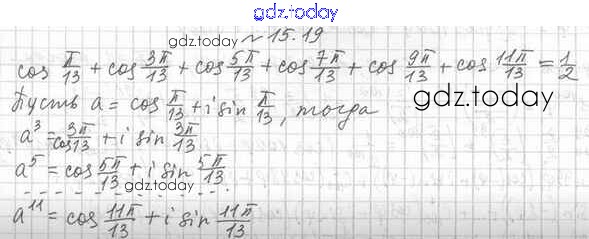 gdz.today
gdz.today № 15.19
cos π/13 + cos 3π/13 + cos 5π/13 + cos 7π/13 + cos 9π/13 + cos 11π/13 = 1/2
Пусть a = cos π/13 + i sin π/13, тогда
gdz.today
a³ = cos 3π/13 + i sin 3π/13
a⁵ = cos 5π/13 + i sin 5π/13
gdz.today
a¹¹ = cos 11π/13 + i sin 11π/13